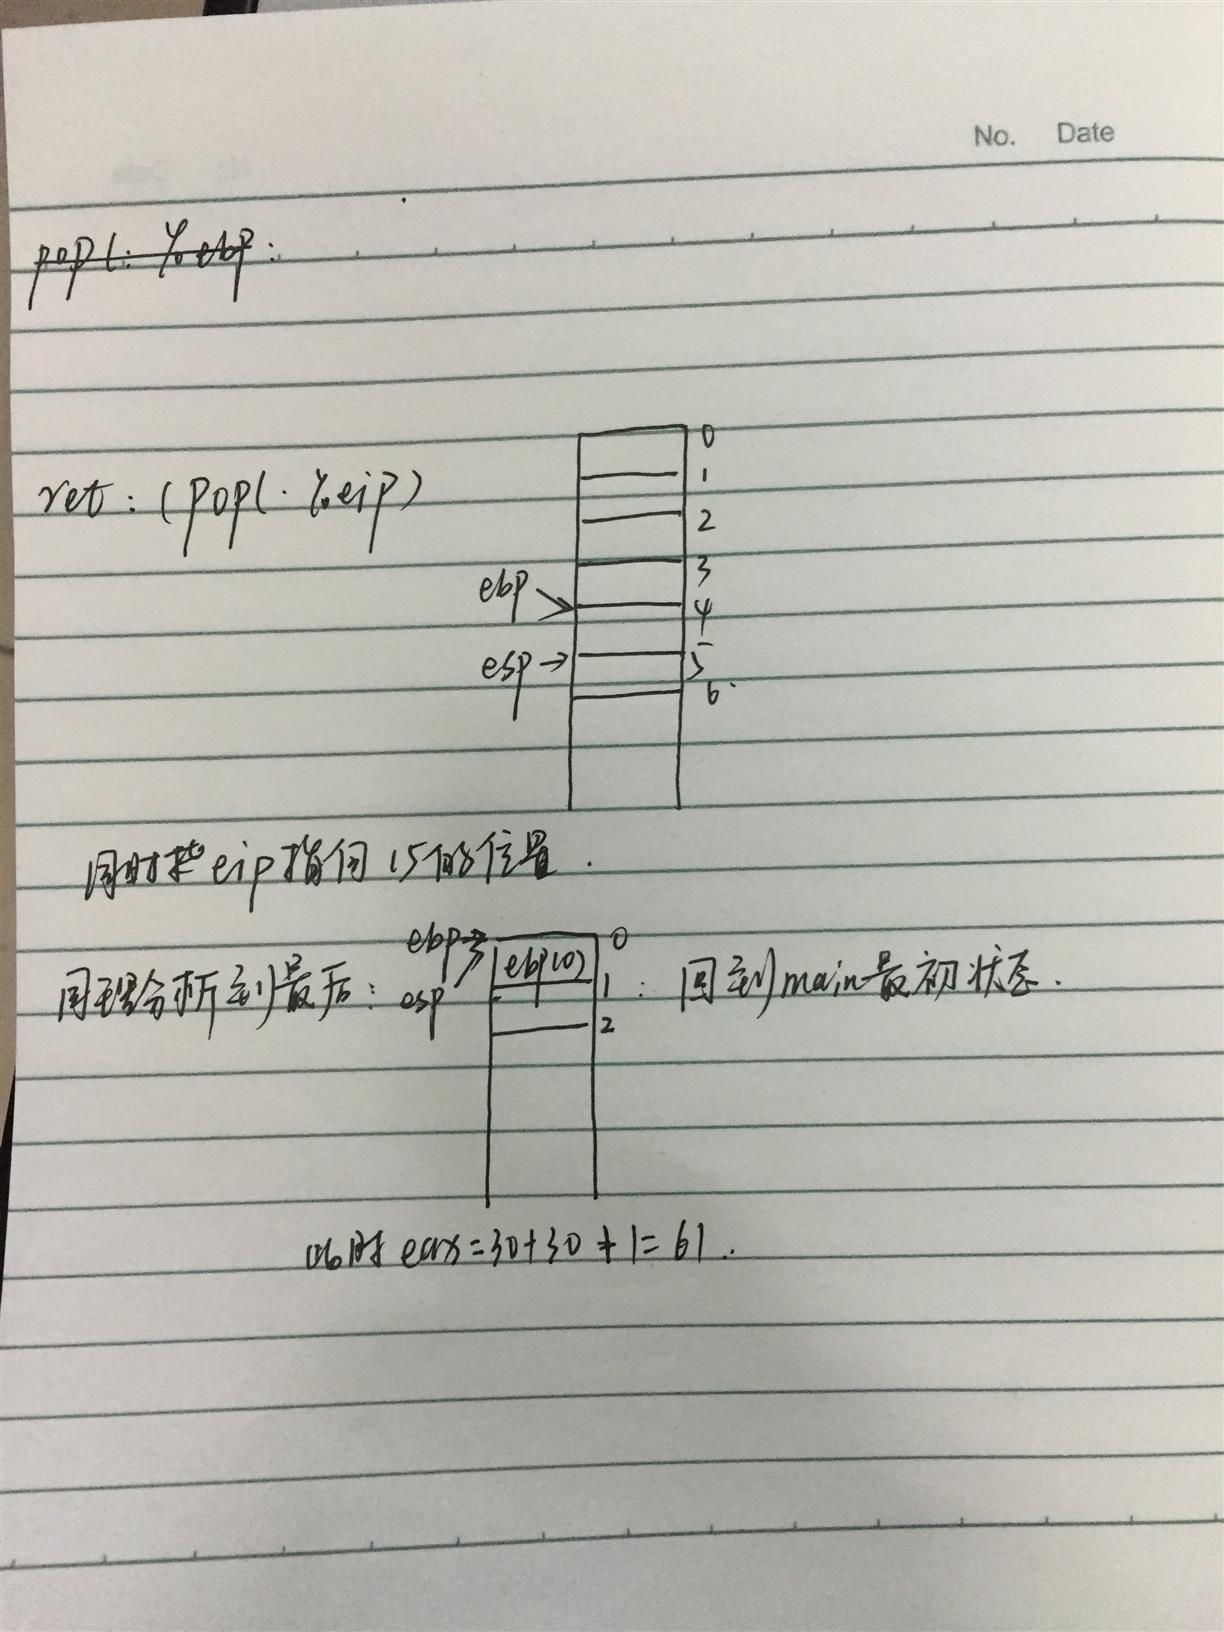 No. Date
popl: %ebp:
ret: (popl. %eip)
0
1
2
3
ebp
4
esp
5
6
同时把eip指向15的位置.
ebp
0
同理分析到最后: esp ebp(0) 1 : 回到main最初状态.
2
此时eax=30+30+1=61.